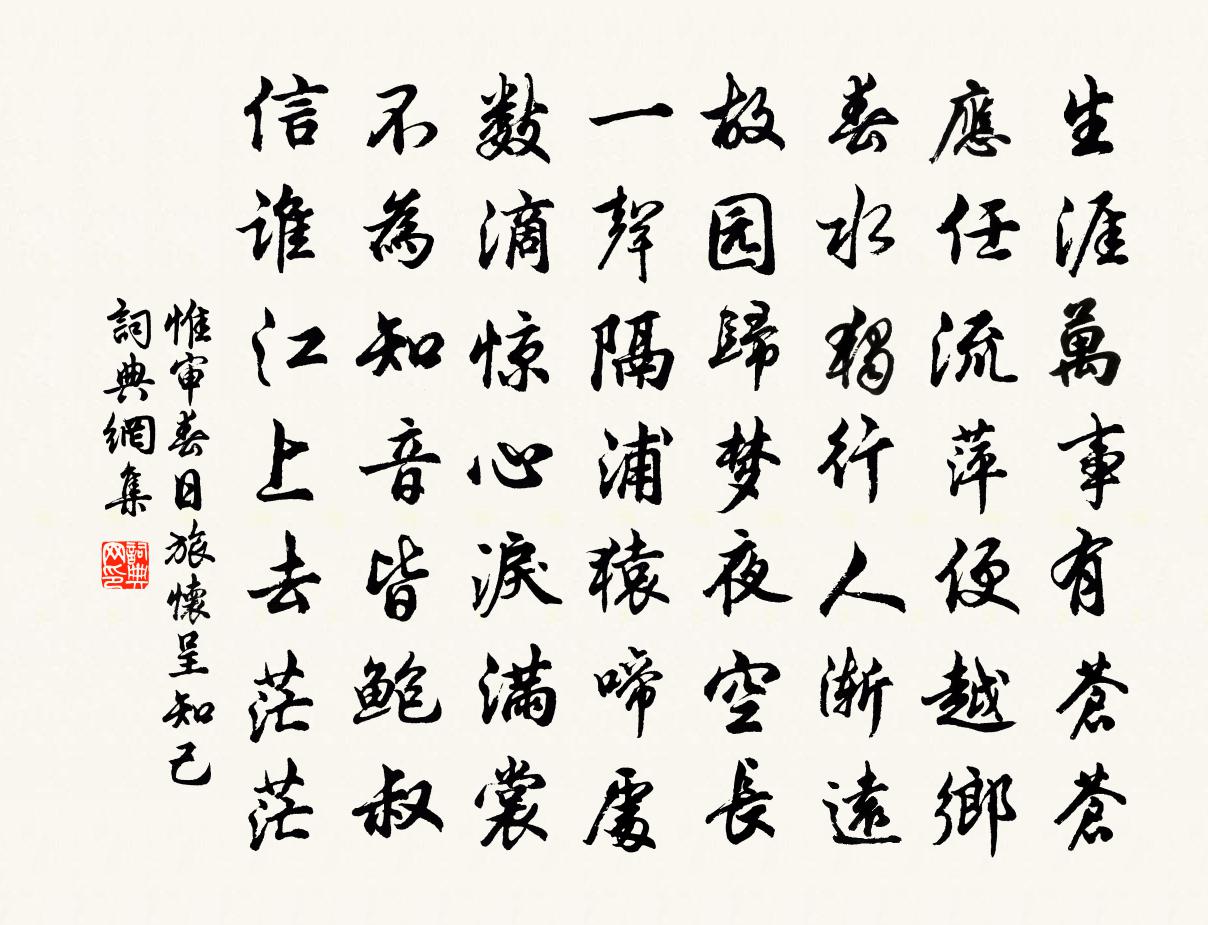 生涯萬事有蒼蒼
應任流萍便越鄉
春水獨行人漸遠
故园歸梦夜空長
一聲隔浦猿啼處
數滴惊心淚满裳
不為知音皆鲍叔
信谁江上去茫茫
惟审春日旅懷呈知己
詞典網集
詞典网印